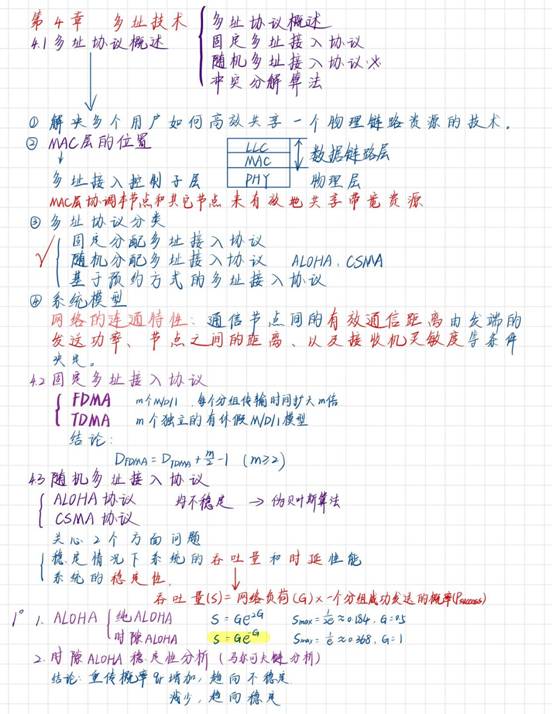 第4章 多址技术
多址协议概述
固定多址接入协议
随机多址接入协议※
冲突分解算法
4.1 多址协议概述
① 解决多个用户如何高效共享一个物理链路资源的技术.
② MAC层的位置
LLC
MAC
PHY
数据链路层
物理层
多址接入控制子层
MAC层协调本节点和其它节点来有效地共享带宽资源
③ 多址协议分类
固定分配多址接入协议
随机分配多址接入协议 ALOHA、CSMA
基于预约方式的多址接入协议
④ 系统模型
网络的连通特性:通信节点间的有效通信距离由发端的
发送功率、节点之间的距离、以及接收机灵敏度等条件
决定。
4.2 固定多址接入协议
FDMA m个M/D/1 每个分组传输时间扩大m倍
TDMA m个独立的有休假M/D/1模型
结论:
D_FDMA = D_TDMA + m/2 - 1 (m≥2)
4.3 随机多址接入协议
ALOHA协议 均不稳定 → 伪贝叶斯算法
CSMA协议
关心2个方面问题
稳定情况下系统的吞吐量和时延性能
系统的稳定性.
吞吐量(S)=网络负荷(G)×一个分组成功发送的概率(Psuccess)
1° 1. ALOHA 纯ALOHA S=Ge^-2G Smax=1/2e≈0.184, G=0.5
时隙ALOHA S=Ge^-G Smax=1/e≈0.368, G=1
2. 时隙ALOHA稳定性分析(马尔可夫链分析)
结论:重传概率qr增加,趋向不稳定
减少,趋向稳定